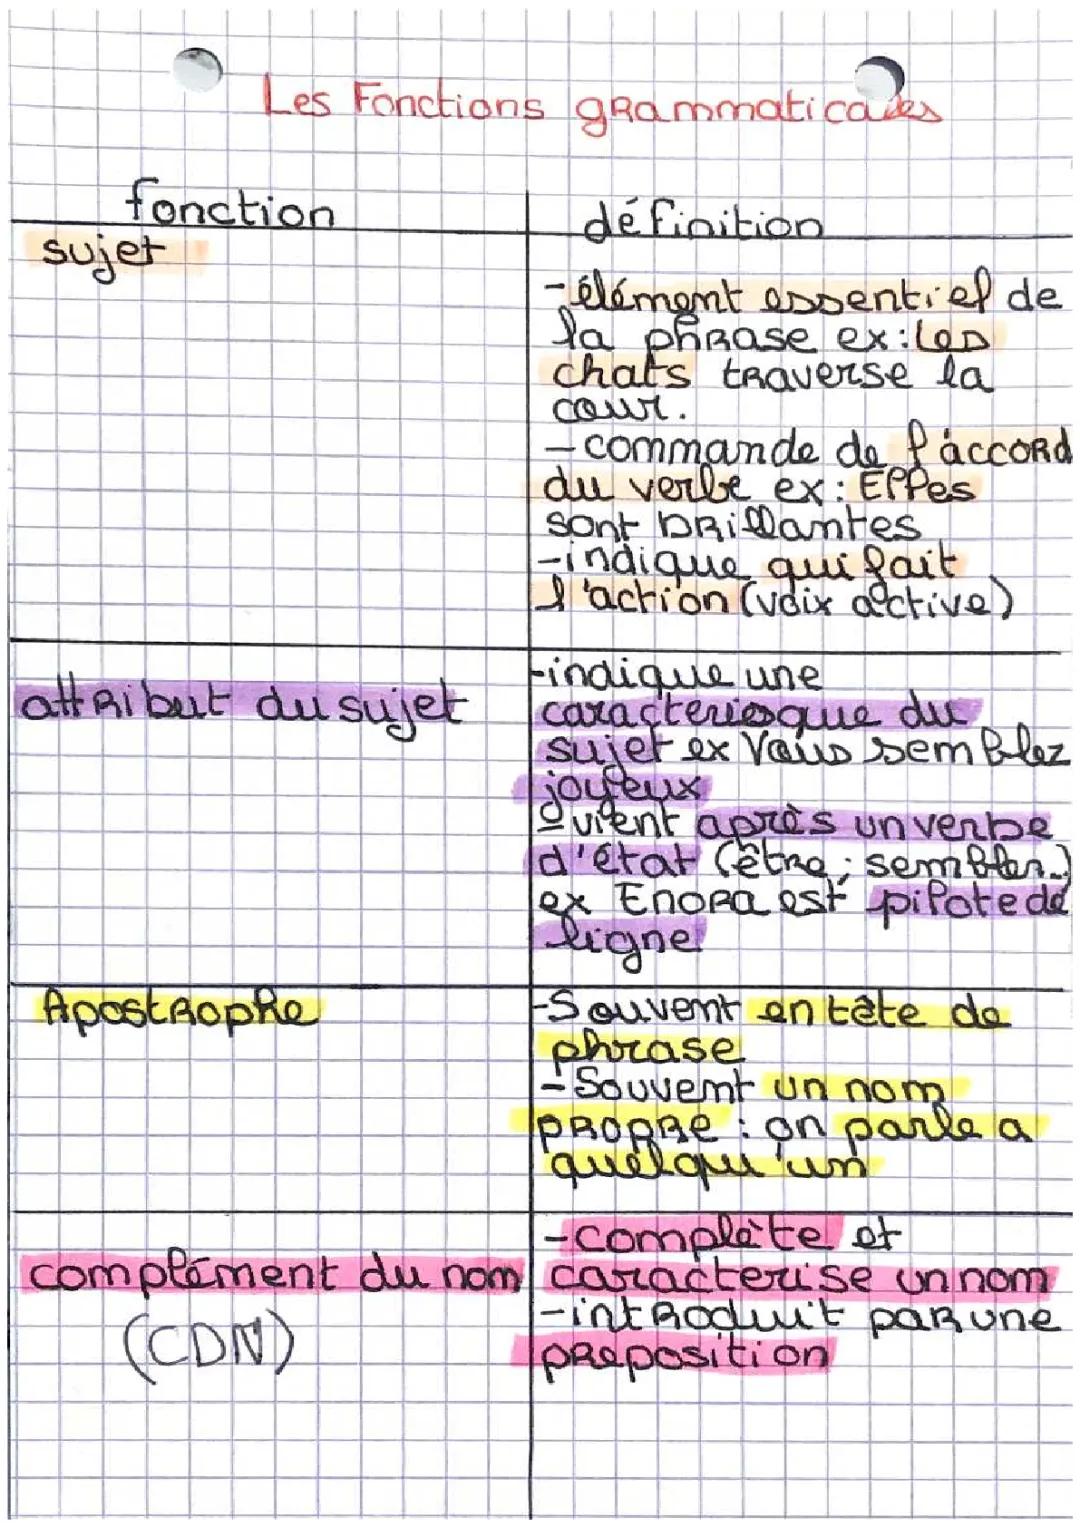 Les Fonctions grammaticales
fonction
définition
sujet
- élément essentiel de
la phrase ex: Les
chats traverse la
cour.
- commande de l'accord
du verbe ex: Elles
sont brillantes
- indique qui fait
l'action (voix active)
attribut du sujet
- indique une
caracteriesque du
sujet ex Vous semblez
joyeux
vient après un verbe
d'état (être; sembler..)
ex Enora est pilote de
ligne
Apostrophe
- Souvent en tête de
phrase
- Souvent un nom
propre : on parle a
quelqu'un
complément du nom
(CDN)
- complète et
caracterise un nom
- introduit par une
preposition